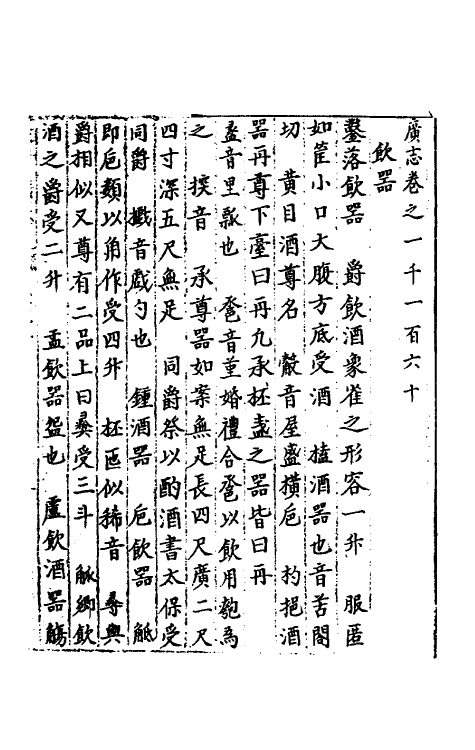 廣志卷之一千一百六十
飲器
鑿落飲器 爵飲酒象雀之形容一升 服匿
如䇺小口大腹方底受酒 榼酒器也音苦閤
切 黄目酒尊名 罃音屋盛横巵 杓挹酒
器再尊下臺曰再九承抔盞之器皆曰再
蠡音里瓢也 卺音堇婚禮合卺以飲用匏為
之 揬音 承尊器如案無足長四尺廣二尺
四寸深五尺無足 同爵祭以酌酒書太保受
同爵 音戯勺也 鍾酒器 巵飲器 觝
即巵類以角作受四升 抔匜似稀音 尋與
爵相似又尊有二品上曰彝受三斗 觚鄉飲
酒之爵受二升 盂飲器盌也 盧飲酒器觴